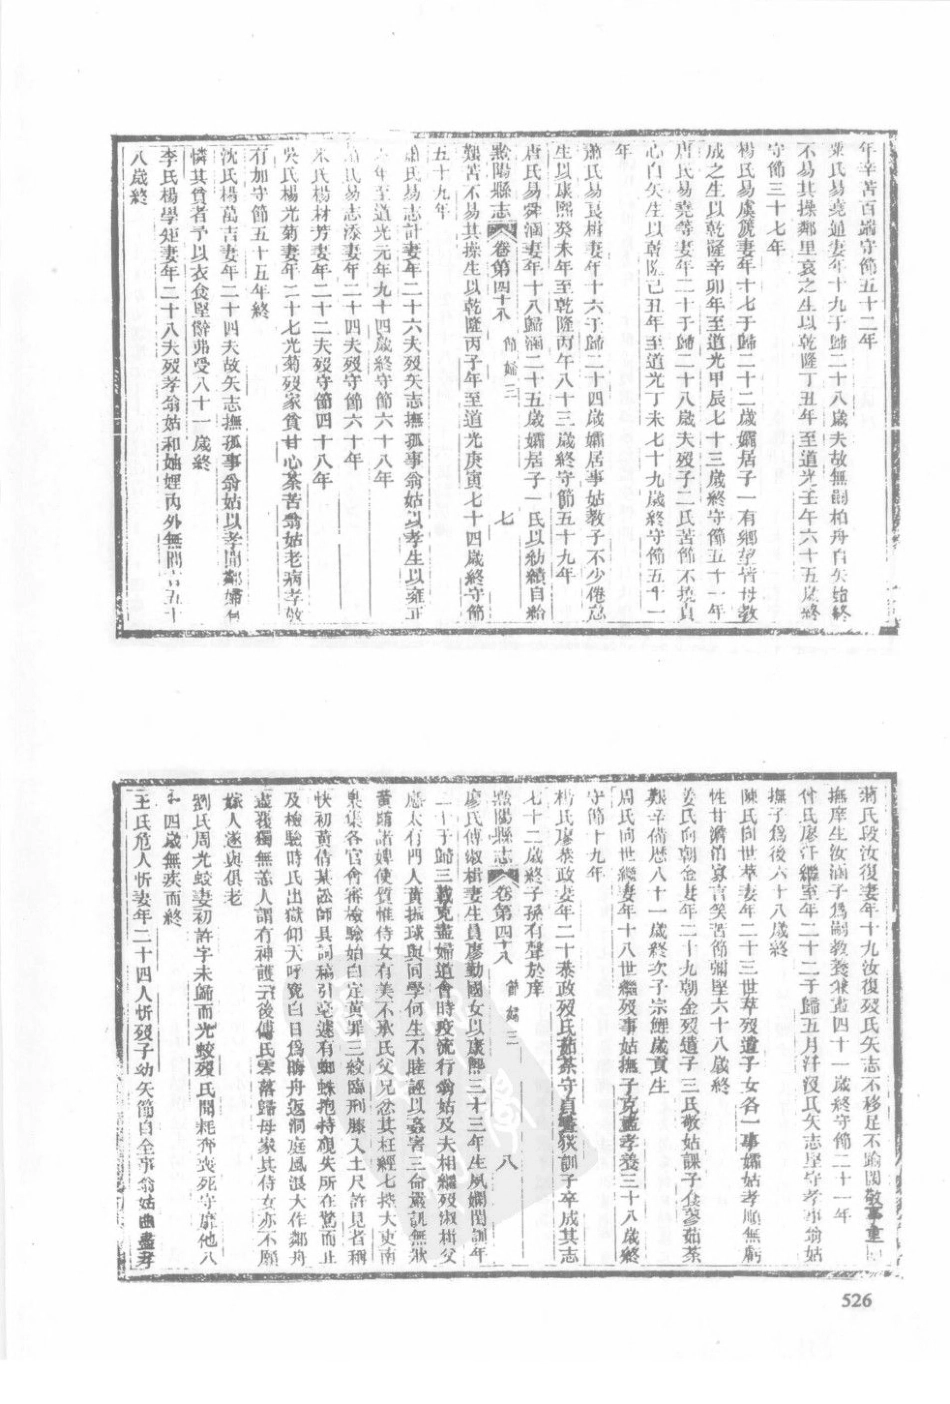 年辛苦百端守節五十二年
氏易堯通妻年十九于歸二十八歲夫故無嗣柏舟自矢始終
不易其操鄰里哀之生以乾隆丁丑年至道光壬午六十五歲終
守節三十七年
楊氏易虞虢妻年十七于歸二十二歲孀居子一有鄉望皆母教
成之生以乾隆辛卯年至道光甲辰七十三歲終守節五十一年
唐氏易堯等妻年二十于歸二十八歲夫歿子二氏苦節不撓貞
心白矢生以乾隆己丑年至道光丁未七十九歲終守節五十一
年
蕭氏易良楫妻年十六于歸二十四歲孀居事姑教子不少倦怠
生以康熙癸未年至乾隆丙午八十三歲終守節五十九年
唐氏易舜涵妻年十八歸涵二十五歲孀居子一氏以紡績自給
黔陽縣志 卷第四十八 節婦三 七
艱苦不易其操生以乾隆丙子年至道光庚寅七十四歲終守節
五十九年
氏易志計妻年二十六夫歿矢志撫孤事翁姑以孝生以雍正
年至道光元年九十四歲終守節六十八年
氏易志添妻年二十四夫歿守節六十年
氏楊材芳妻年二十二夫歿守節四十八年
吳氏楊光菊妻年二十七光菊歿家貧甘心荼苦翁姑老病孝敬
有加守節五十五年終
沈氏楊萬吉妻年二十四夫故矢志撫孤事翁姑以孝聞鄰婦有
憐其貧者予以衣食堅辭弗受八十一歲終
李氏楊學矩妻年二十八夫歿孝翁姑和妯娌內外無間言五十
八歲終
蔣氏段汝復妻年十九汝復歿氏矢志不移足不踰閾敬事重
撫摩生汝涵子為嗣教養兼盡四十一歲終守節二十一年
氏廖汗繼室年二十二于歸五月汗沒氏矢志堅守孝事翁姑
撫子為後六十八歲終
陳氏向世萃妻年二十三世萃歿遺子女各一事孀姑孝順無虧
性甘澹泊寡言笑苦節彌堅六十八歲終
姜氏向朝金妻年二十九朝金歿遺子三氏敬姑課子食蓼茹荼
艱辛備歷八十一歲終次子宗鯉歲貢生
周氏向世繼妻年十八世繼歿事姑撫子克盡孝養三十八歲終
守節十九年
楊氏廖棻政妻年二十棻政歿氏茹荼守貞畫荻訓子卒成其志
七十二歲終子孫有聲於庠
黔陽縣志 卷第四十八 節婦三 八
廖氏傅淑楫妻生員廖勤國女以康熙三十三年生夙嫻閨訓年
二十于歸三載克盡婦道會時疫流行翁姑及夫相繼歿淑楫父
應太有門人黃振球與同學何生不睦誣以姦害三命嚴訊無狀
黃賄諸婢使質惟侍女有美不承氏父兄忿其枉經七控大吏南
集各官會審檢驗始白定黃罪三絞臨刑膝入土尺許見者稱
快初黃倩某訟師具詞稿引毫遽有蜘蛛抱持硯失所在驚而止
及檢驗時氏出獄仰天呼冤白日為晦舟返洞庭風浪大作鄰舟
盡覆獨無恙人謂有神護云後傅氏零落歸母家其侍女亦不願
嫁人遂與俱老
劉氏周光蛟妻初許字未歸而光蛟歿氏聞耗奔喪死守靡他八
十四歲無疾而終
王氏危人忻妻年二十四人忻歿子幼矢節自全事翁姑曲盡孝
526